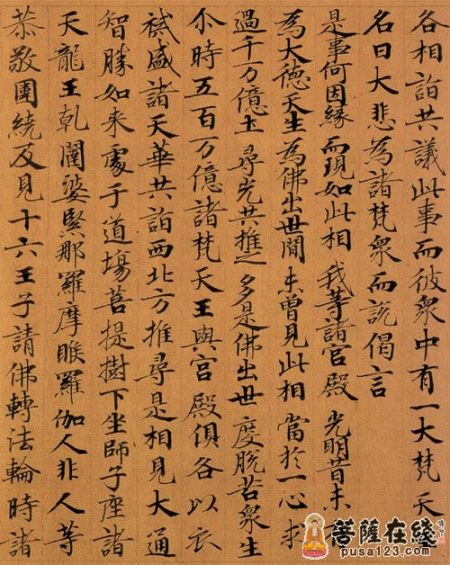 各相詣共議此事而彼衆中有一大梵天
名曰大悲為諸梵衆而說偈言
是事何因緣 而現如此相 我等諸宮殿 光明昔未
為大德天生 為佛出世間 未曾見此相 當於一心求
過千万億土 尋光共推之 多是佛出世 度脫苦衆生
尒時五百万億諸梵天王與宮殿俱各以衣
祴盛諸天華共詣西北方推尋是相見大通
智勝如来處于道場菩提樹下坐師子座諸
天龍王乾闥婆緊那羅摩睺羅伽人非人等
恭敬圍繞及見十六王子請佛轉法輪時諸
菩薩在綫
pusa123.com